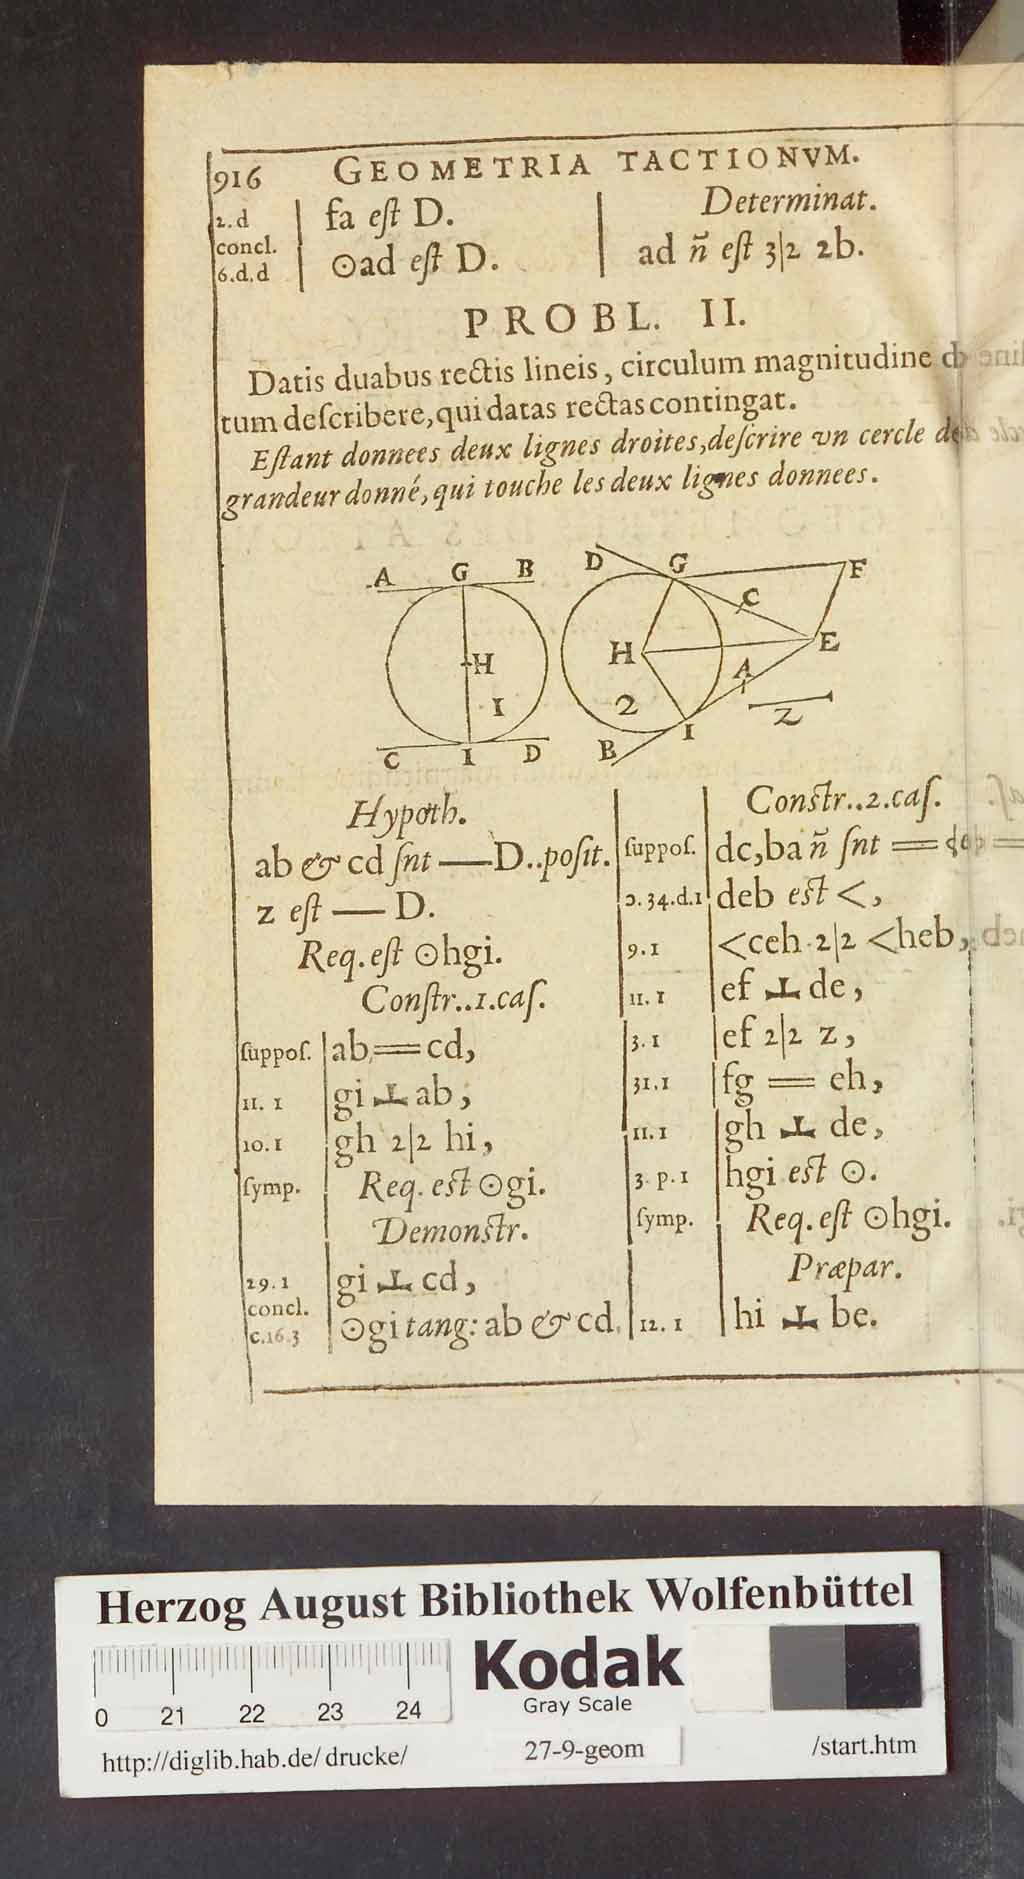 916 GEOMETRIA TACTIONVM.
2.d fa eſt D.
concl.
6.d.d ⊙ad eſt D.
Determinat.
ad ñ eſt 3|2 2b.
PROBL. II.
Datis duabus rectis lineis, circulum magnitudine
tum deſcribere, qui datas rectas contingat.
Eſtant donnees deux lignes droites, deſcrire vn cercle de
grandeur donné, qui touche les deux lignes donnees.
A G B
H
1
C I D
D G F
C
H E
A
2 Z
B I
Hypoth.
ab & cd ſnt — D..poſit.
z eſt — D.
Req. eſt ⊙hgi.
Conſtr..1.caſ.
ſuppoſ. ab = cd,
11. 1 gi ⊥ ab,
10. 1 gh 2|2 hi,
ſymp. Req. eſt ⊙gi.
Demonſtr.
29.1 gi ⊥ cd,
concl.
c.16.3 ⊙gi tang: ab & cd.
Conſtr..2.caſ.
ſuppoſ. dc, ba ñ ſnt =
2.34.d.1 deb eſt <,
9.1 <ceh 2|2 <heb,
11. 1 ef ⊥ de,
3.1 ef 2|2 z,
31.1 fg = eh,
11.1 gh ⊥ de,
3. p. 1 hgi eſt ⊙.
ſymp. Req. eſt ⊙hgi.
Præpar.
12. 1 hi ⊥ be.
Herzog August Bibliothek Wolfenbüttel
Kodak
Gray Scale
0 21 22 23 24
http://diglib.hab.de/drucke/ 27-9-geom /start.htm